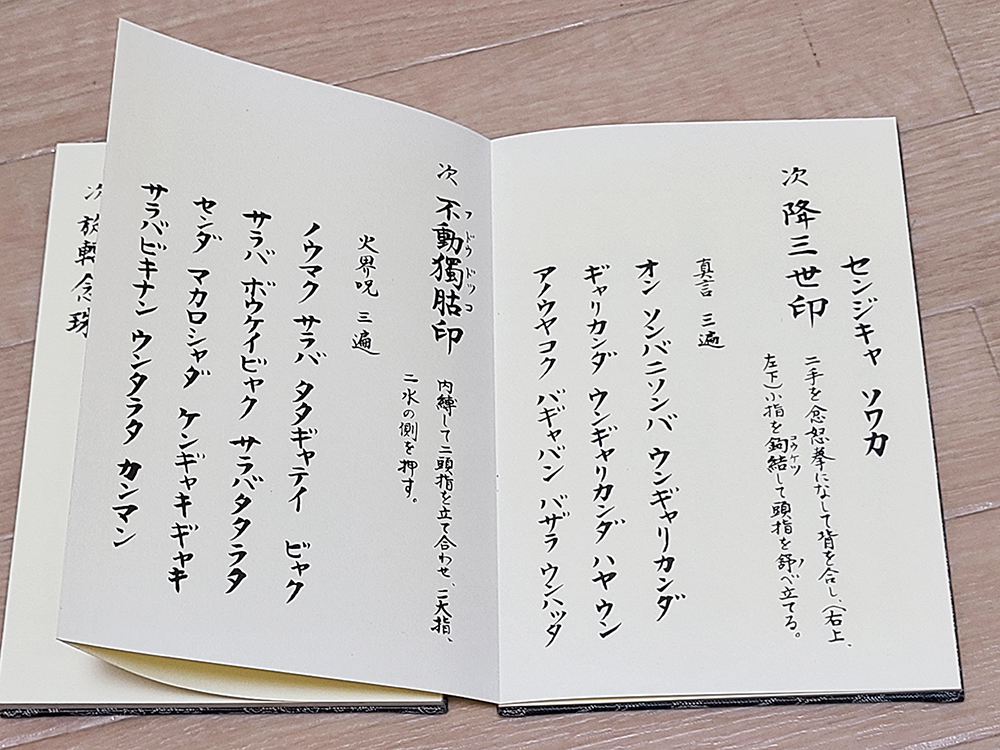 センジキャ ソワカ
次 降三世印
二手を忿怒拳になして背を合し、(右上、
左下)小指を鉤結して頭指を舒べ立てる。
コウケツ
ノ
真言 三遍
オン ソンバニソンバ ウンギャリカンダ
ギャリカンダ ウンギャリカンダ ハヤウン
アノウヤコク バギャバン バザラ ウンハッタ
次 不動獨鈷印
フドウドッコ
内縛して二頭指を立て合わせ、二大指、
二水の側を押す。
火界呪 三遍
ノウマク サラバ タタギャテイ ビャク
サラバ ボウケイビャク サラバタタラタ
センダ マカロシャダ ケンギャキギャキ
サラバビキナン ウンタラタ カンマン
次 旋轉念珠